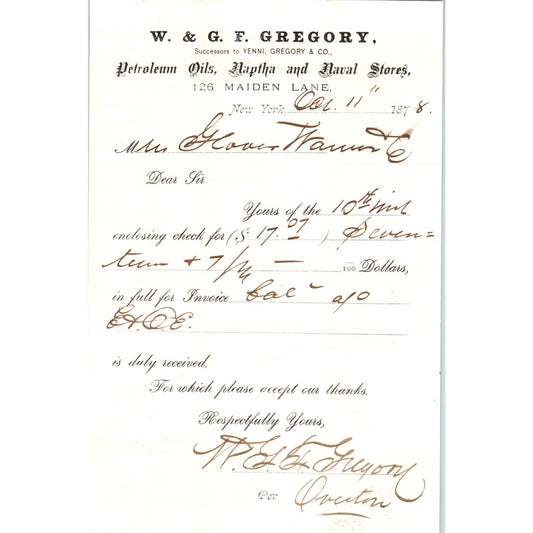 W. & G. F. GREGORY,
Successors to YENNI, GREGORY & CO.,
Petroleum Oils, Naptha and Naval Stores,
126 MAIDEN LANE,
New York, Oct. 11" 1878.
Mess Glover Warner & C
Dear Sir
Yours of the 10th inst
enclosing check for ($ 17.07 ) Seven=
teen + 7/ — 100 Dollars,
in full for Invoice Bal a/o
E. & O. E.
is duly received.
For which please accept our thanks.
Respectfully Yours,
W. & G. F. Gregory
Per Overton